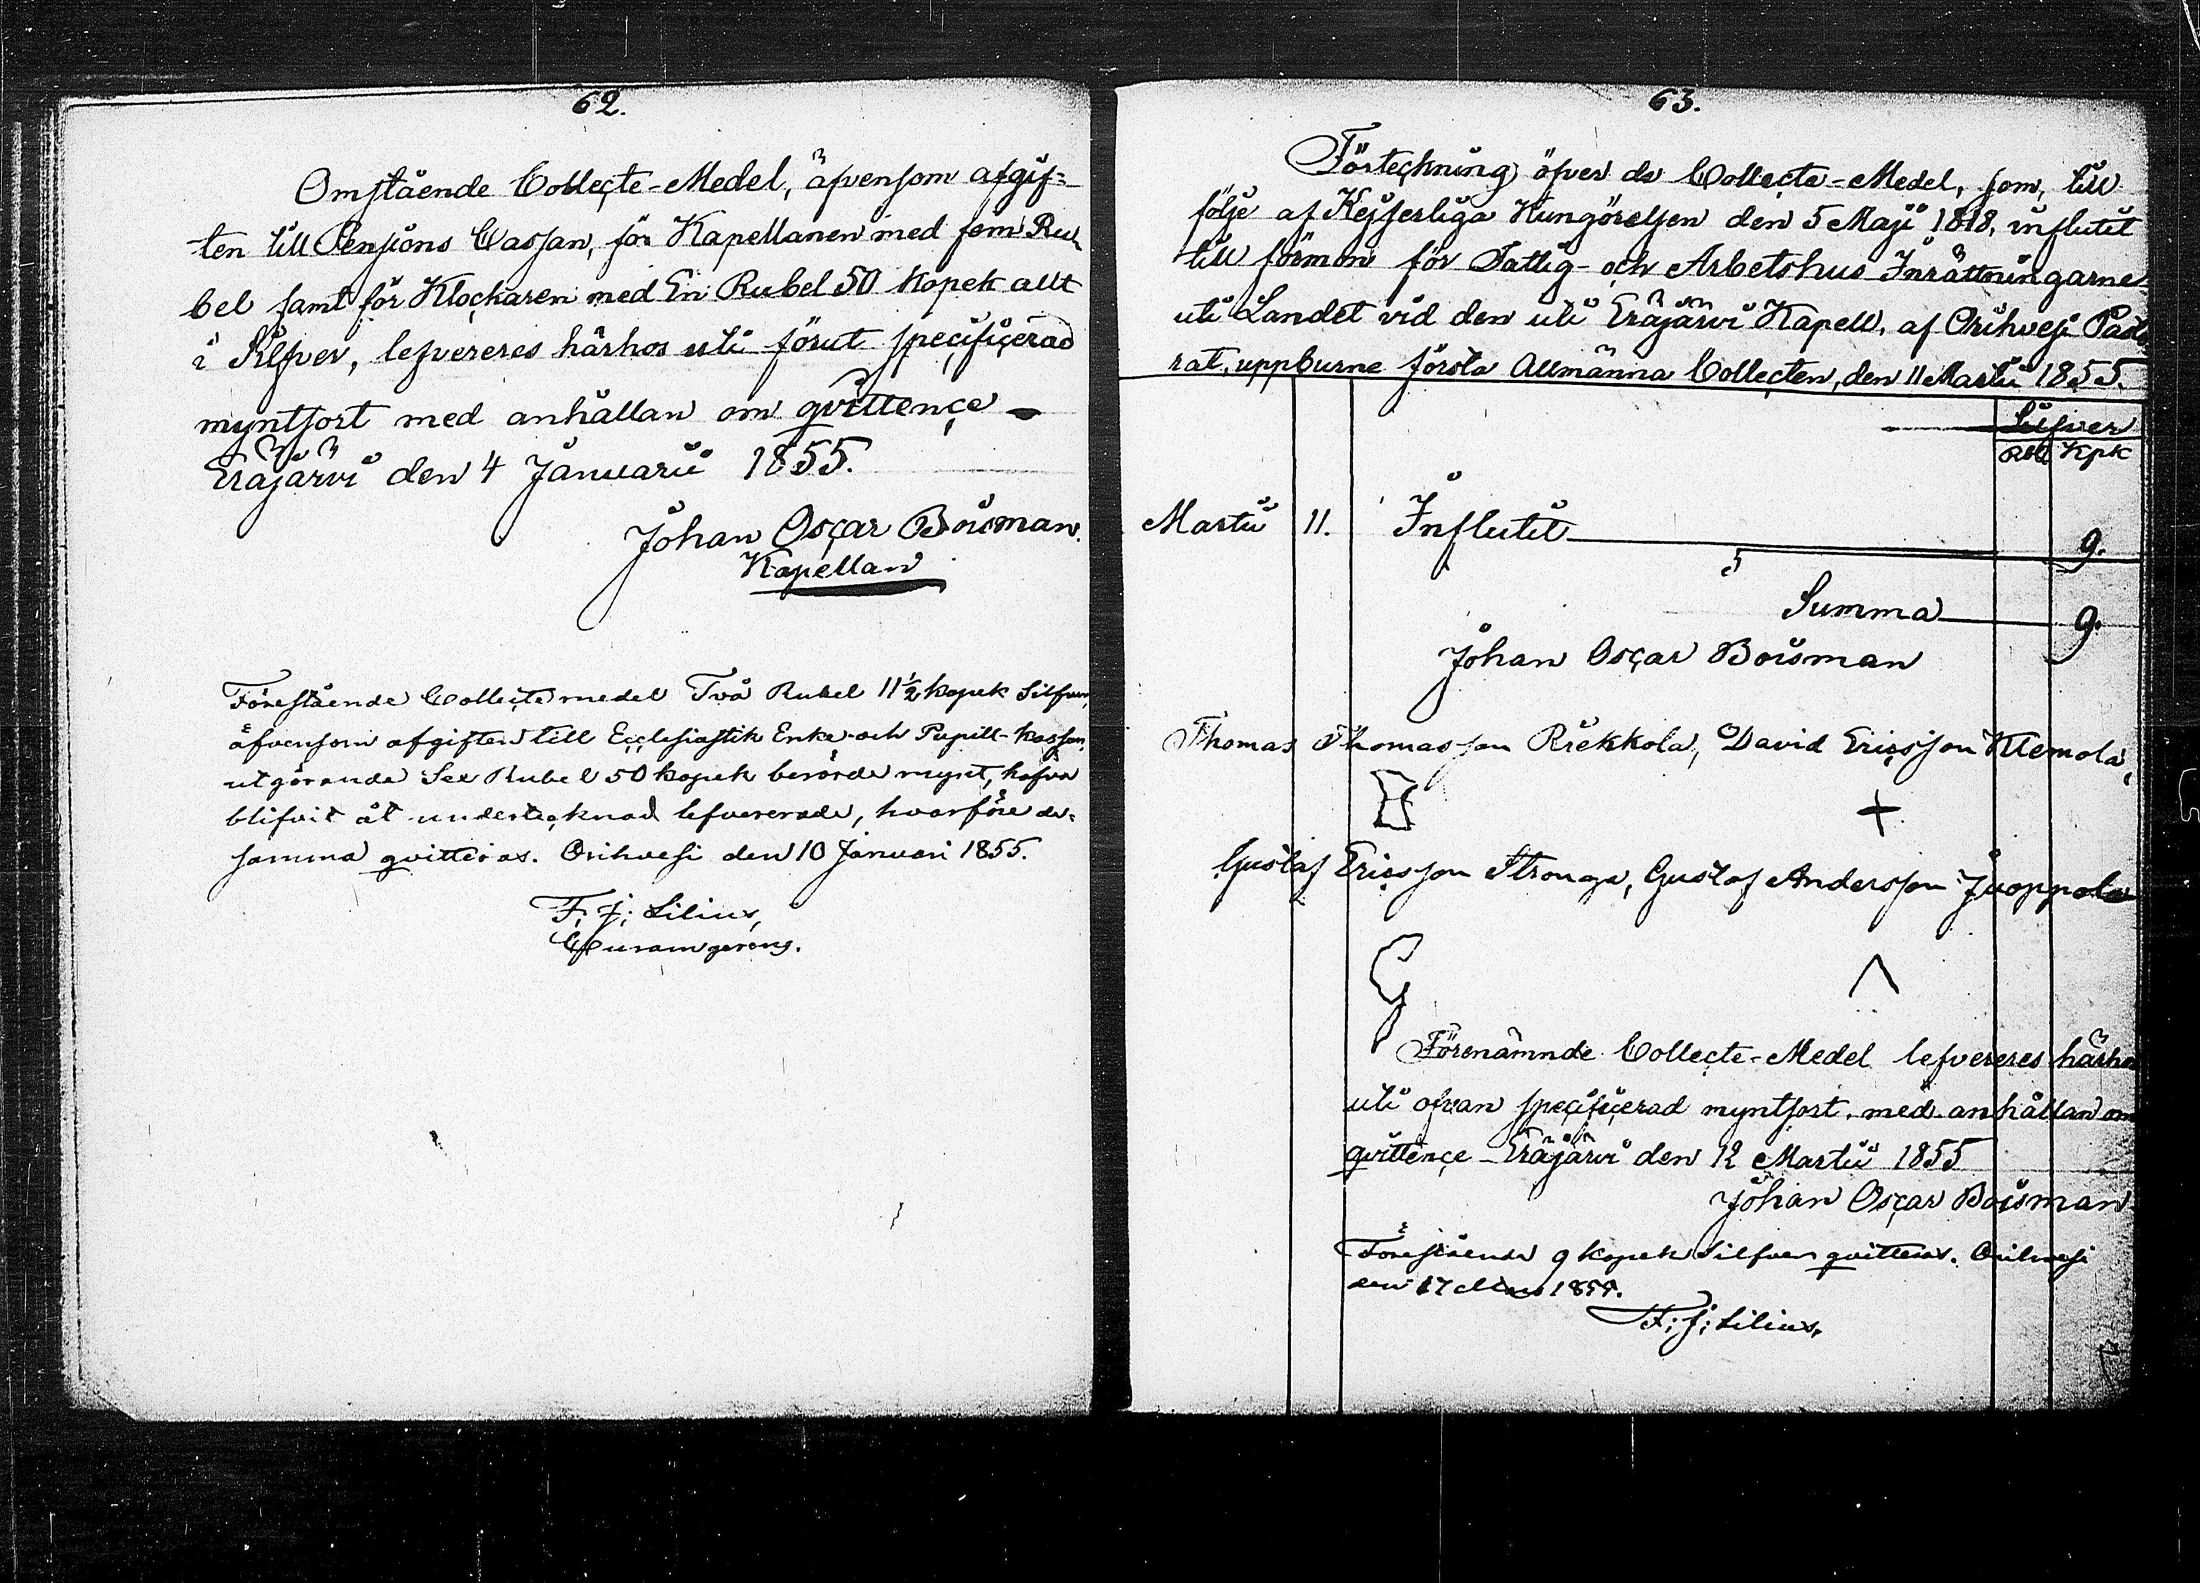 62.
Omstående Collecte-Medel, äfvensom afgif=
ten till Pensions Cassan, för Kapellanen med fem Ru=
bel samt för Klockaren med En Rubel 50 kopek allt
i Silfver, lefvereres härhos uti förut specificerad
myntsort med anhållan om qvittence —
Eräjärvi den 4 Januarii 1855.
Johan Oscar Boisman.
Kapellan
Förestående Collectemedel Två Rubel 11½ kopek Silfver,
äfvensom afgiften till Ecclesiastik Enke- och Pupill-kassan,
utgörande Sex Rubel 50 kopek berörde mynt, hafva
blifvit åt undertecknad lefvererade, hvarföre de=
samma qvitteras. Orihvesi den 10 Januari 1855.
F. J. Lilius,
Curam gerens.
63.
Förteckning öfver de Collecte-Medel, som, till
följe af Kejserliga Kungörelsen den 5 Maji 1818, influtit
till förmon för Fattig- och Arbetshus Inrättningarne
uti Landet vid den uti Eräjärvi Kapell, af Orihvesi Pasto
rat, uppburne första Allmänna Collecten, den 11 Martii 1855.
Silfver
Rbl Kpk
Martii 11. Influtit 9.
Summa 9.
Johan Oscar Boisman
Thomas Thomasson Riekkola, David Ericsson Klemola,
Gustaf Ericsson Stronga, Gustaf Andersson Juoppola
Förenämnde Collecte-Medel lefvereres härhos
uti ofvan specificerad myntsort, med anhållan om
qvittence — Eräjärvi den 12 Martii 1855
Johan Oscar Boisman
Förestående 9 kopek Silfver qvitteras. Orihvesi
den 17 Mars 1855.
F. J. Lilius.